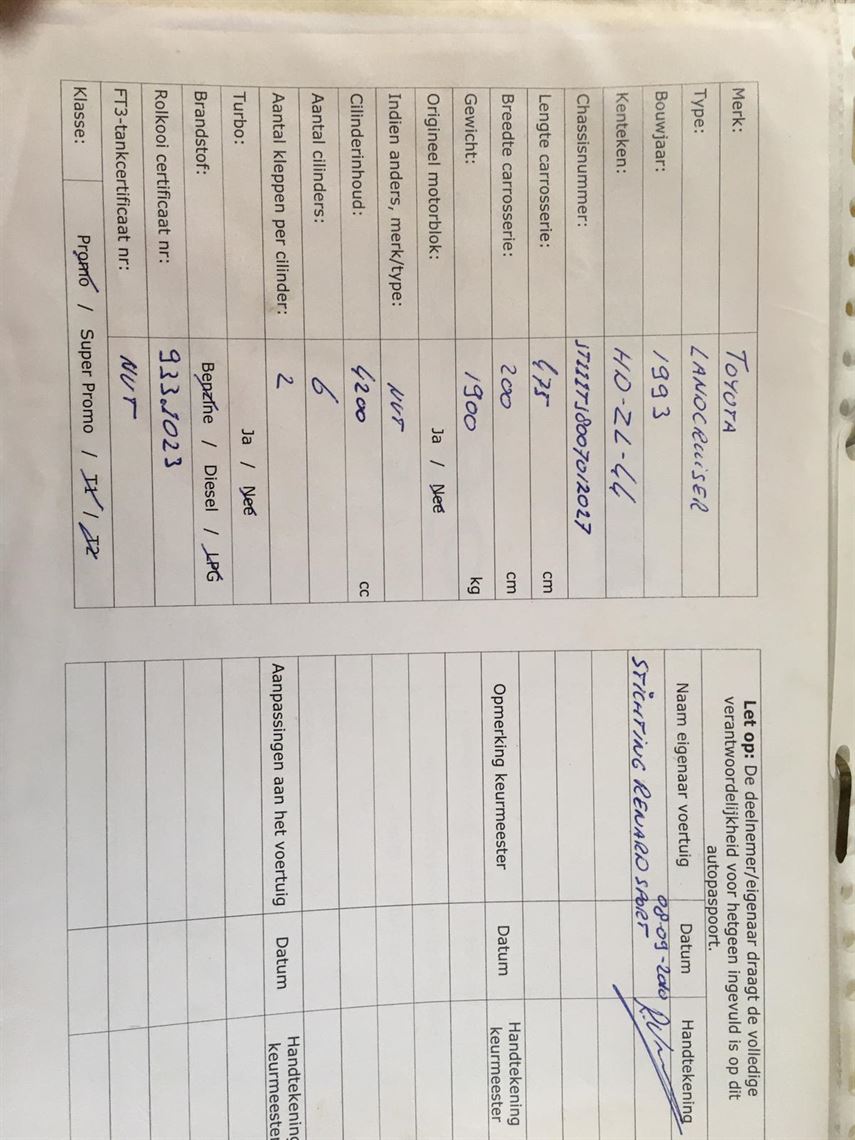 Merk: TOYOTA
Type: LANDCRUISER
Bouwjaar: 1993
Kenteken: HD-ZL-44
Chassisnummer:
Lengte carrosserie: 475 cm
Breedte carrosserie: 200 cm
Gewicht: 1900 kg
Origineel motorblok: Ja / Nee
Indien anders, merk/type: NVT
Cilinderinhoud: 4200 cc
Aantal cilinders: 6
Aantal kleppen per cilinder: 2
Turbo: Ja / Nee
Brandstof: Benzine / Diesel / LPG
Rolkooi certificaat nr:
FT3-tankcertificaat nr: NVT
Klasse: Promo / Super Promo / T1 / T2
Let op: De deelnemer/eigenaar draagt de volledige
verantwoordelijkheid voor hetgeen ingevuld is op dit
autopaspoort.
Naam eigenaar voertuig Datum Handtekening
STICHTING RENARD SPORT 08-09-2010
Opmerking keurmeester Datum Handtekening
keurmeester
Aanpassingen aan het voertuig Datum Handtekening
keurmeester